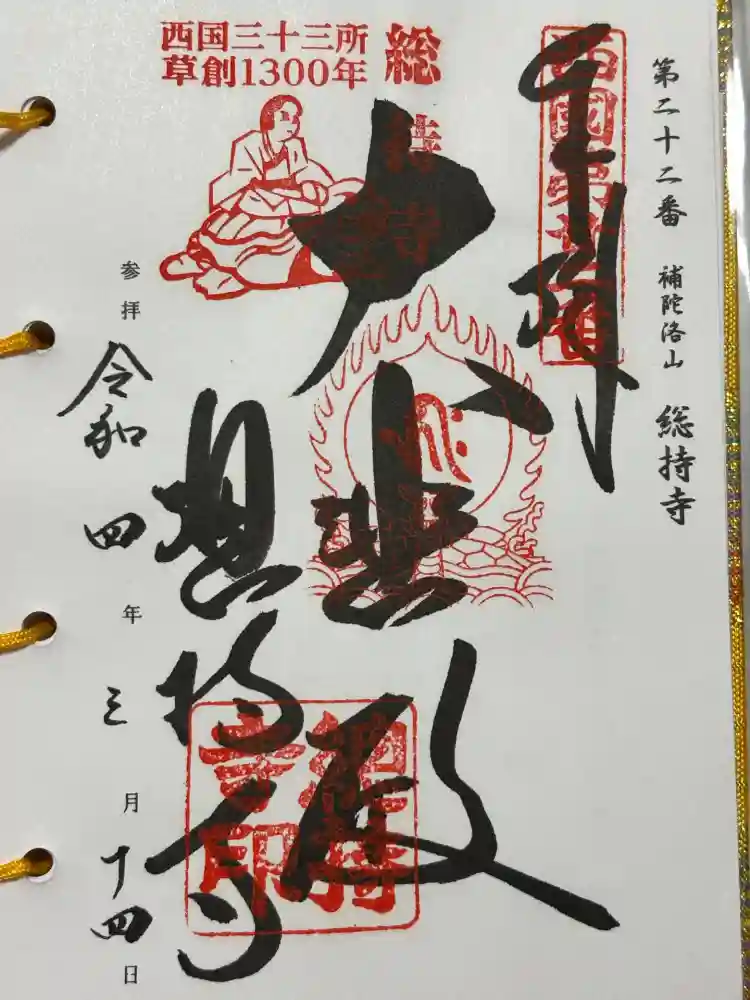 第二十二番 補陀洛山 総持寺
西國第廿二番
奉拝
大悲殿
総持寺
総持寺
総持寺印
西国三十三所
草創1300年
参拝 令和四年三月十四日